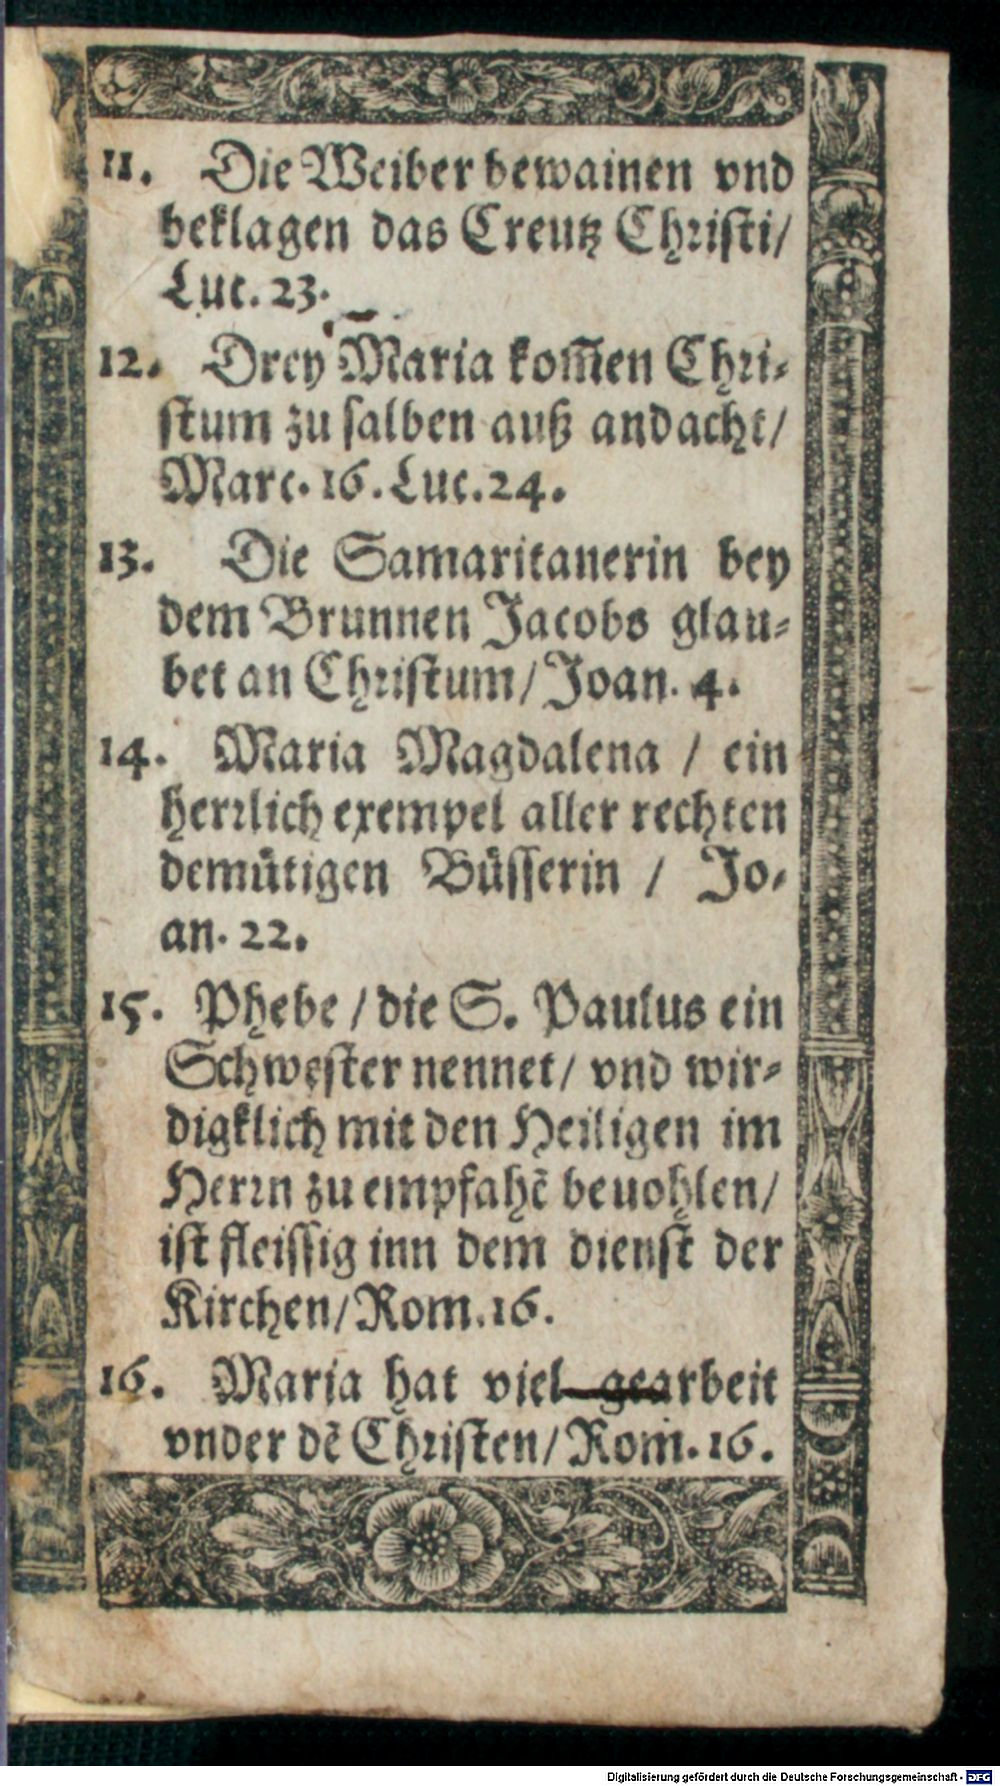 11. Die Weiber bewainen vnd
beklagen das Creutz Christi/
Luc. 23.
12. Drey Maria kom̃en Chri-
stum zu salben auß andacht/
Marc. 16. Luc. 24.
13. Die Samaritanerin bey
dem Brunnen Jacobs glau-
bet an Christum/ Joan. 4.
14. Maria Magdalena / ein
herrlich exempel aller rechten
demütigen Büsserin / Jo-
an. 22.
15. Phebe / die S. Paulus ein
Schwester nennet/ vnd wir-
digklich mit den Heiligen im
Herrn zu empfahẽ beuohlen/
ist fleissig inn dem dienst der
Kirchen/ Rom. 16.
16. Maria hat viel gearbeit
vnder dẽ Christen/ Rom. 16.
Digitalisierung gefördert durch die Deutsche Forschungsgemeinschaft - DFG